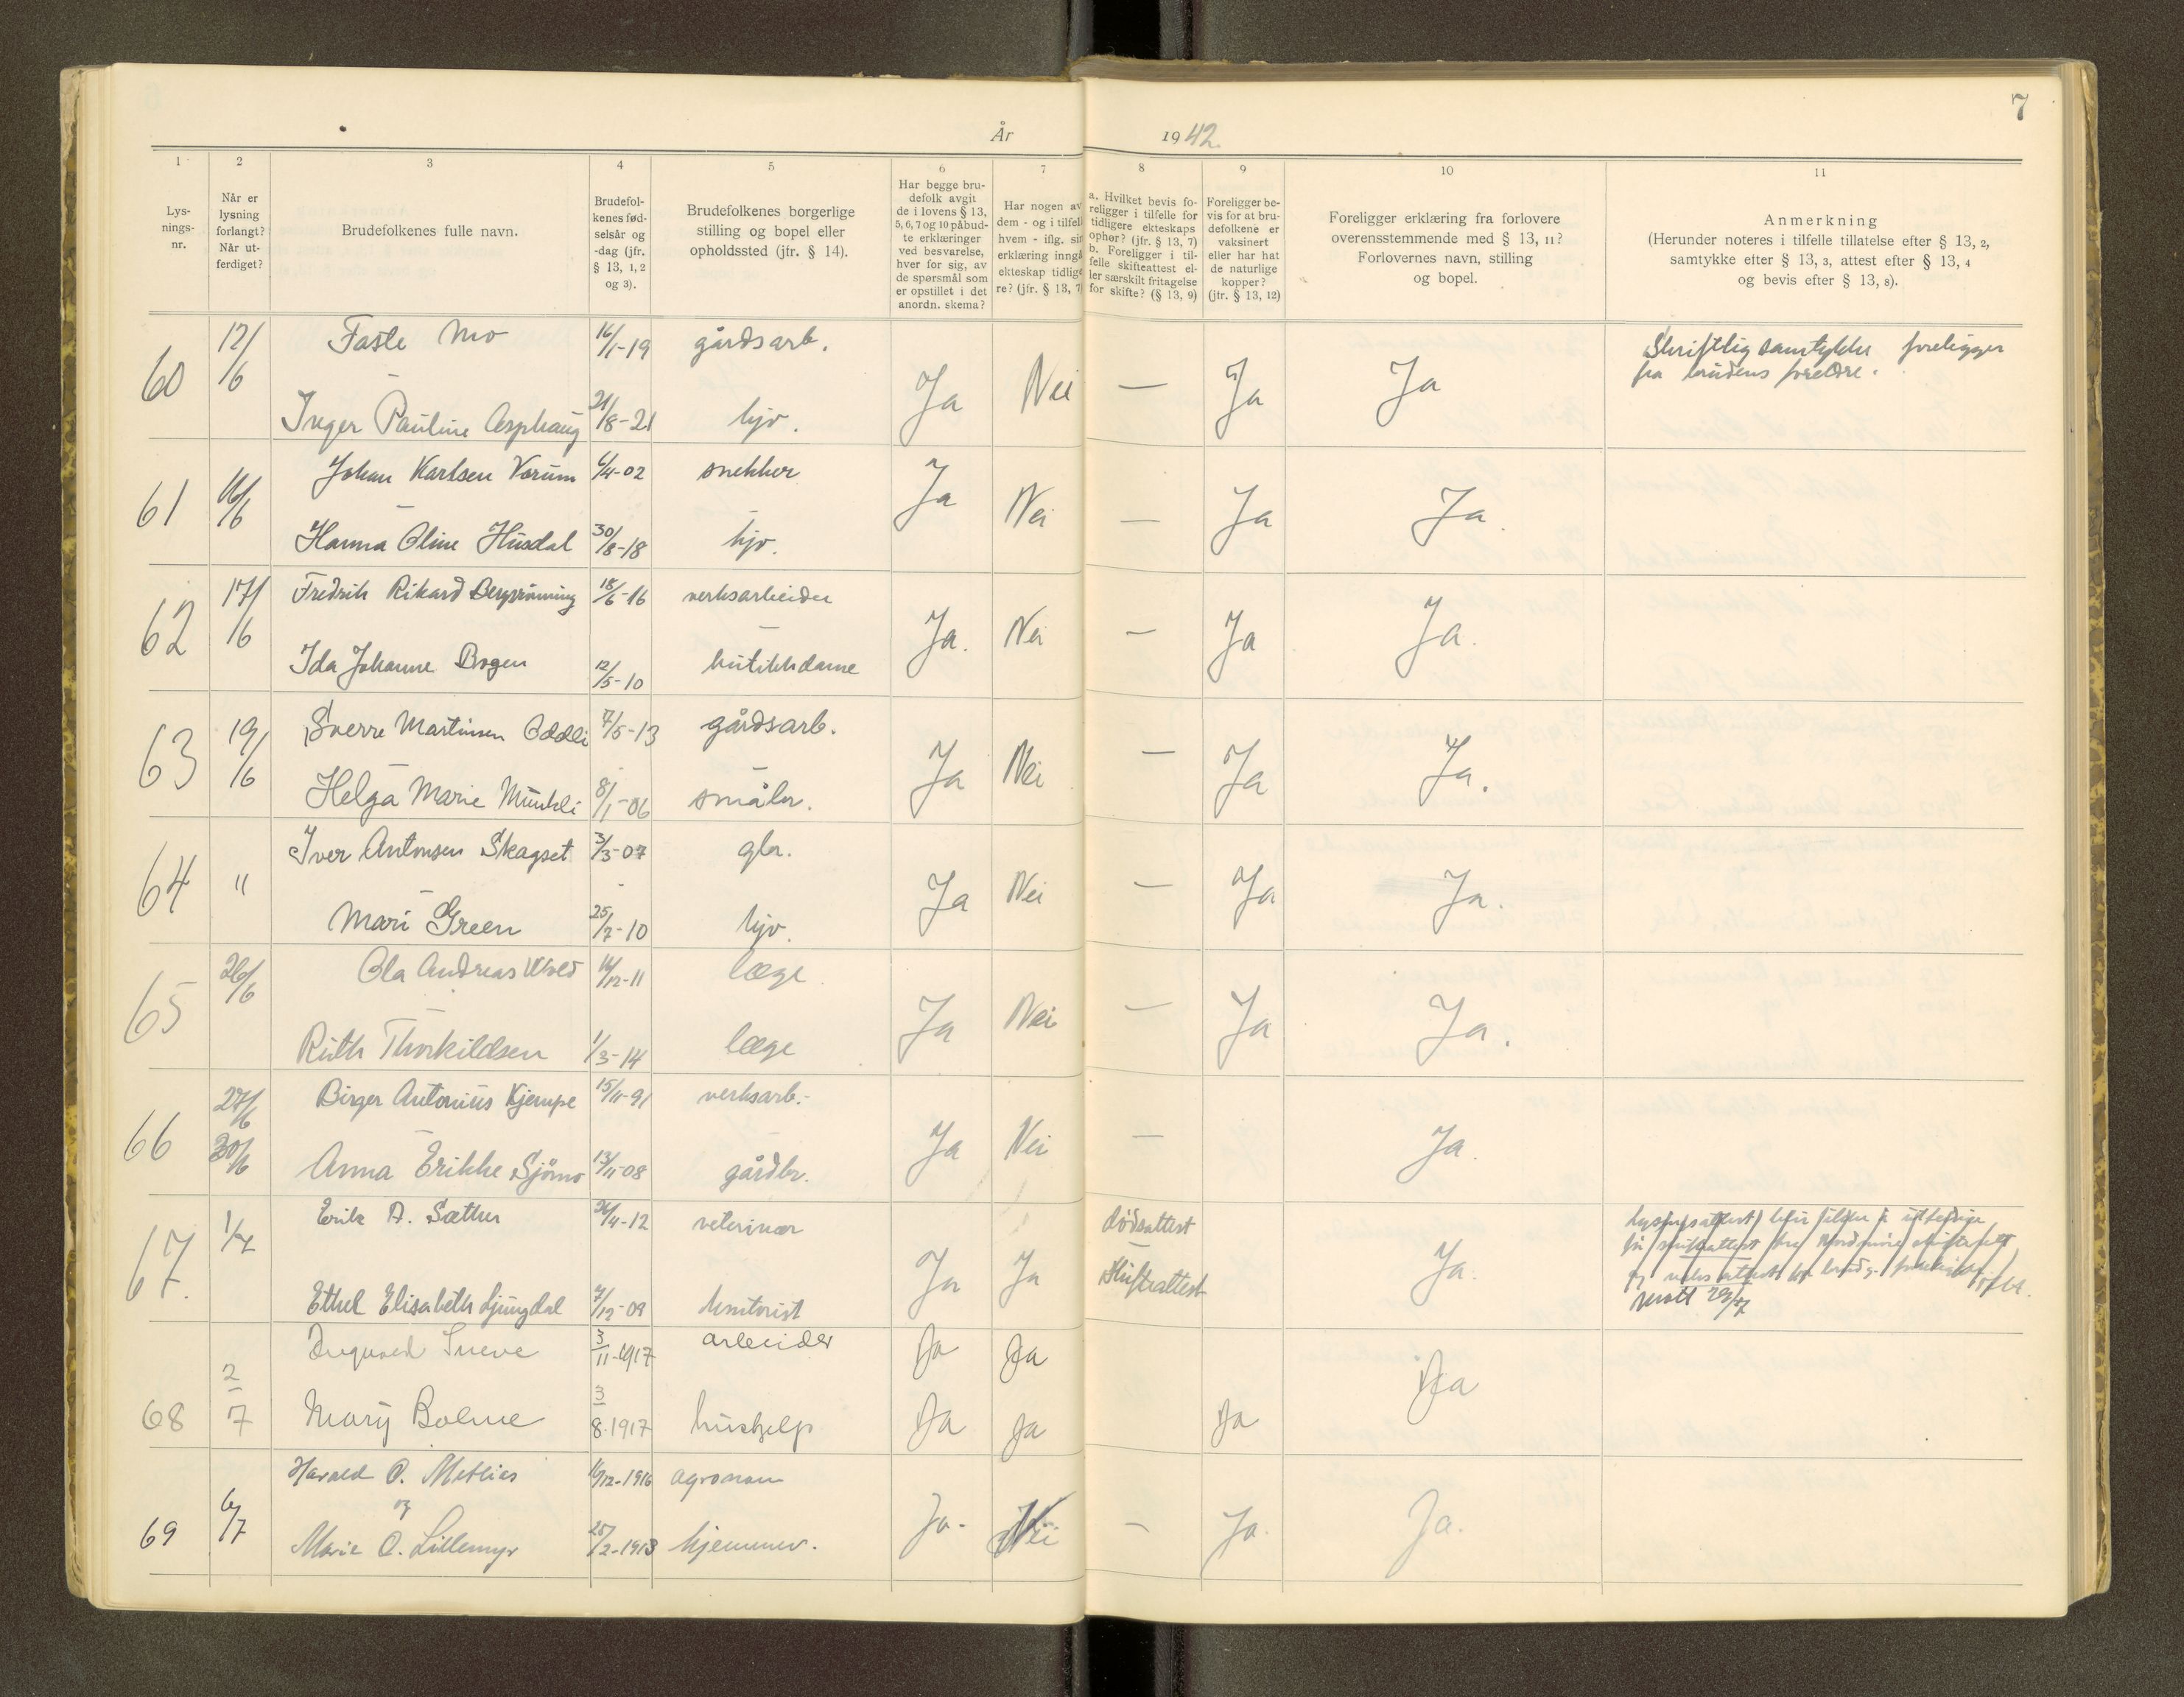 7
År 1942.
1 2 3 4 5 6 7 8 9 10 11
Lys-
nings-
nr.
Når er
lysning
forlangt?
Når ut-
ferdiget?
Brudefolkenes fulle navn.
Brudefol-
kenes fød-
selsår og
-dag (jfr.
§ 13, 1, 2
og 3).
Brudefolkenes borgerlige
stilling og bopel eller
opholdssted (jfr. § 14).
Har begge bru-
defolk avgit
de i lovens § 13,
5, 6, 7 og 10 påbud-
te erklæringer
ved besvarelse,
hver for sig, av
de spørsmål som
er opstillet i det
anordn. skema?
Har nogen av
dem - og i tilfell
hvem - iflg. sin
erklæring inngå
ekteskap tidlige
re? (jfr. § 13, 7)
a. Hvilket bevis fo-
religger i tilfelle for
tidligere ekteskaps
ophør? (jfr. § 13, 7)
b. Foreligger i til-
felle skifteattest el-
ler særskilt fritagelse
for skifte? (§ 13, 9)
Foreligger be-
vis for at bru-
defolkene er
vaksinert
eller har hat
de naturlige
kopper?
(jfr. § 13, 12)
Foreligger erklæring fra forlovere
overensstemmende med § 13, 11?
Forlovernes navn, stilling
og bopel.
Anmerkning
(Herunder noteres i tilfelle tillatelse efter § 13, 2,
samtykke efter § 13, 3, attest efter § 13, 4
og bevis efter § 13, 8).
60 12/6 Faste Mo 16/1-19 gårdsarb. Ja Nei — Ja Ja Skriftlig samtykke foreligger
fra brudens foreldre.
Inger Pauline Asphaug 21/8-21 hjv.
61 16/6 Johan Karlsen Vorum 6/4-02 snekker Ja Nei — Ja Ja.
Hanna Oline Husdal 30/8-18 hjv.
62 17/6 Fredrik Rikard Bergrønning 18/6-16 verksarbeider Ja. Nei — Ja Ja.
Ida Johanne Bogen 12/5-10 butikkdame
63 19/6 Sverre Martinsen Oddli 7/5-13 gårdsarb. Ja Nei — Ja Ja.
Helga Marie Munkli 8/1-06 småbr.
64 " Iver Antonsen Skagset 3/3-07 gbr. Ja Nei — Ja Ja.
Mari Green 25/7-10 hjv.
65 26/6 Ola Andreas 14/12-11 læge Ja Nei — Ja Ja.
Ruth Thorkildsen 1/3-14 læge
66 27/6 30/6 Birger Antonius Kjempe 15/11-91 verksarb. Ja Nei — Ja.
Anna Erikke Sjømo 13/11-08 gårdbr.
67. 1/7 Erik A. Sæther 24/4-12 veterinær Ja Ja dødsattest
Skifteattest Ja.
Ethel Elisabeth Ljungdal 7/12-09 kontorist
68 2/7 Ingvard Sneve 3/11-1917 arbeider Ja Ja Ja
Mary Bolme 3/8-1917 hushjelp Ja Ja Ja
69 6/7 Harald O. Metlias 16/12-1916 agronom Ja- Nei — Ja. Ja.
og
Marie O. Lillemyr 25/2-1913 hjemmev.